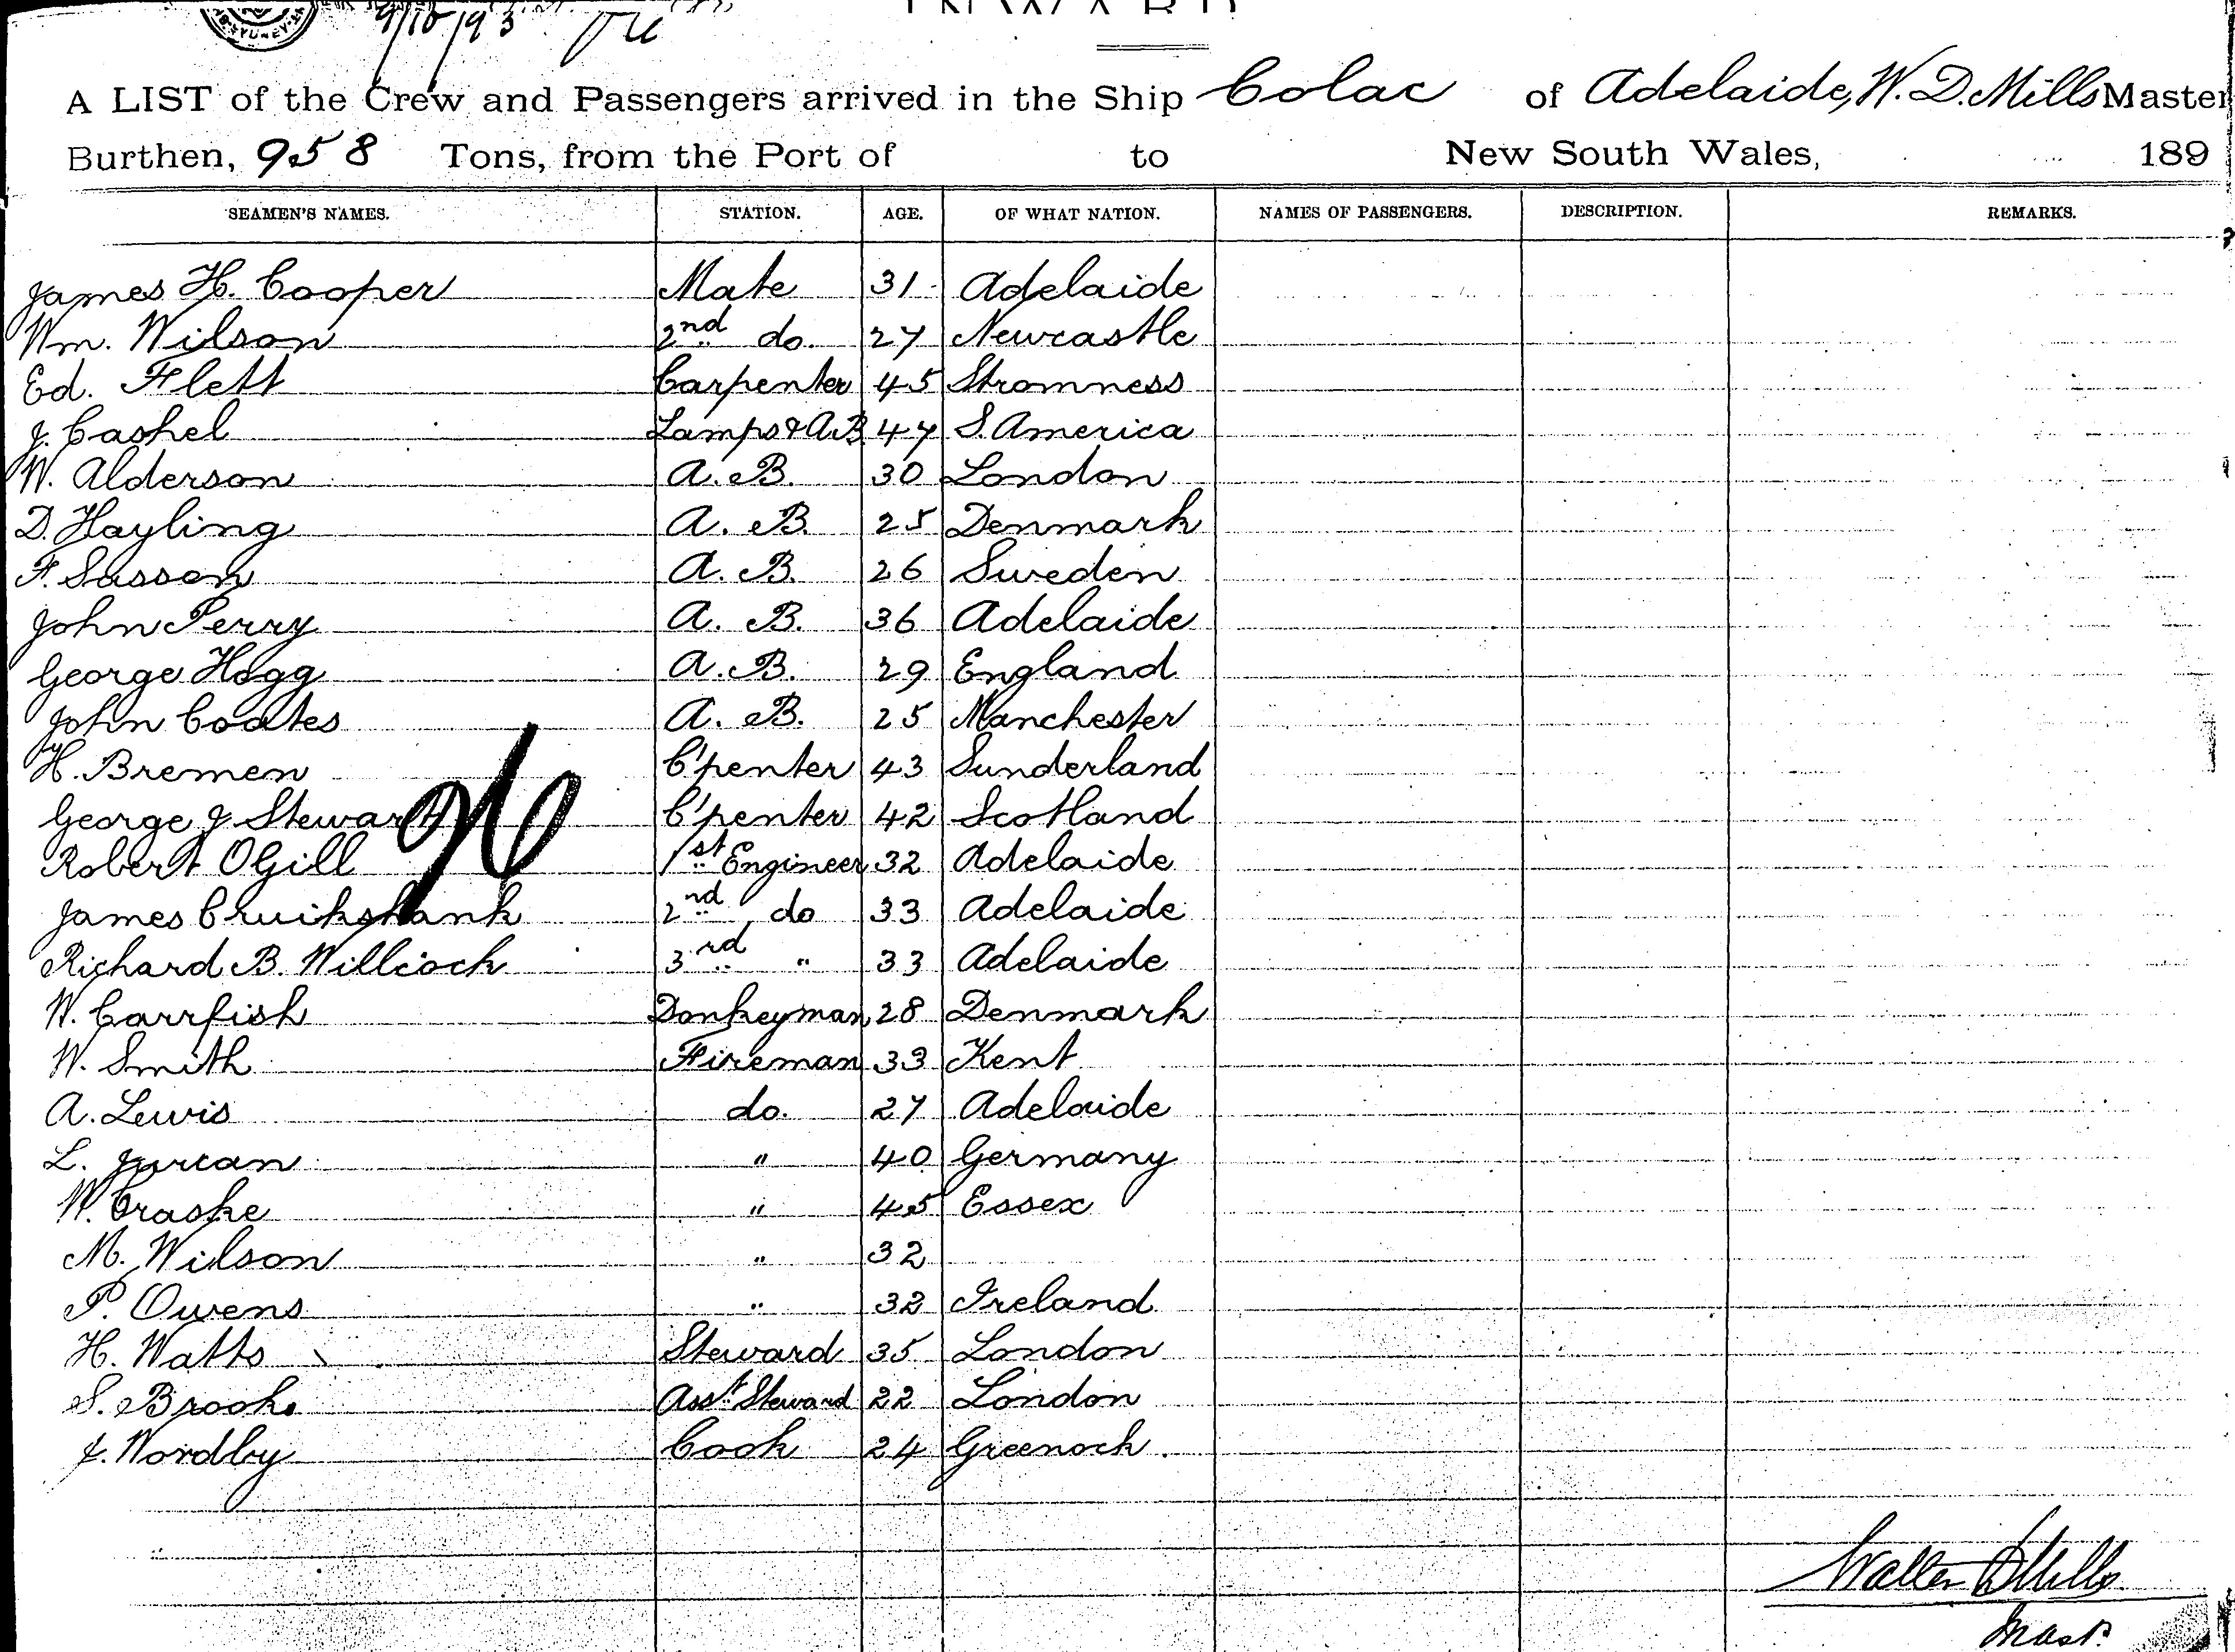 SYDNEY
9/10/93
INWARD
A LIST of the Crew and Passengers arrived in the Ship Colac of Adelaide, W. D. Mills Master
Burthen, 958 Tons, from the Port of to New South Wales, 189
SEAMEN'S NAMES. STATION. AGE. OF WHAT NATION. NAMES OF PASSENGERS. DESCRIPTION. REMARKS.
James H. Cooper Mate 31 Adelaide
Wm. Wilson 2nd do. 27 Newcastle
Ed. Flett Carpenter 45 Stromness
J. Cashel Lamps & A.B. 47 S. America
W. Alderson A. B. 30 London
D. Hayling A. B. 25 Denmark
F. Sassen A. B. 26 Sweden
John Perry A. B. 36 Adelaide
George Hogg A. B. 29 England
John Coates A. B. 25 Manchester
H. Bremen C'penter 43 Sunderland
George J Stewart C'penter 42 Scotland
Robert O Gill 1st Engineer 32 Adelaide
James Cruikshank 2nd do 33 Adelaide
Richard B. Willcock 3rd " 33 Adelaide
W. Carrfish Donkeyman 28 Denmark
W. Smith Fireman 33 Kent
A. Lewis do. 27 Adelaide
L. Jurcan " 40 Germany
W. Craske " 45 Essex
M. Wilson " 32
P. Owens " 32 Ireland
H. Watts Steward 35 London
S. Brooks Asst. Steward 22 London
J. Nordby Cook 24 Greenock.
Walter D Mills
Mast.